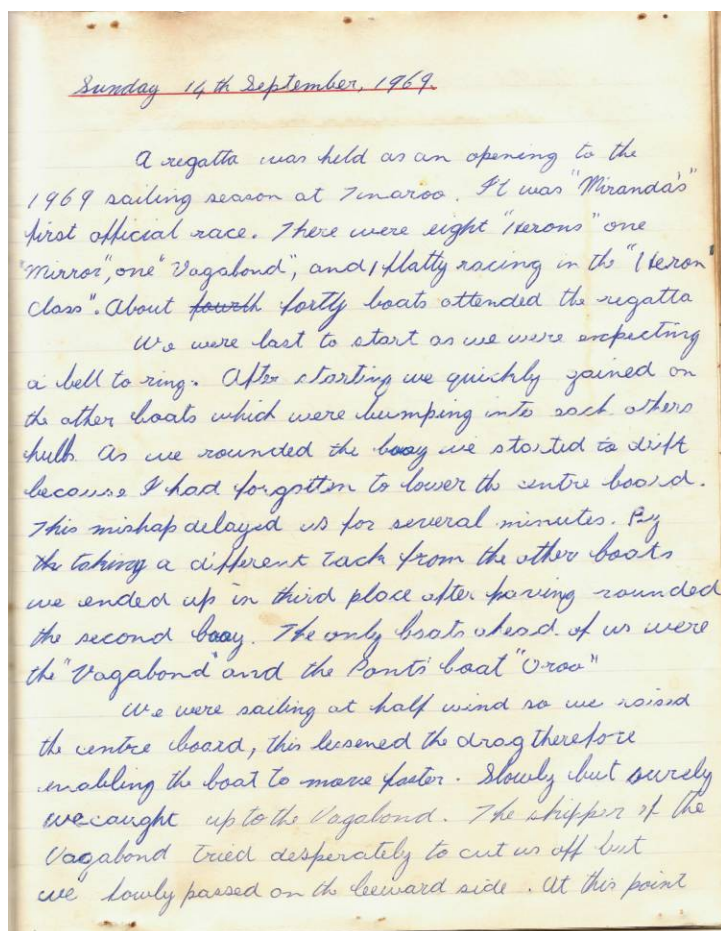 Sunday 14th September, 1969.
A regatta was held as an opening to the
1969 sailing season at Tinaroo. It was "Miranda's"
first official race. There were eight "Herons" one
"Mirror", one "Vagabond", and 1 flatty racing in the "Heron
Class". About fourth forthy boats attended the regatta
We were last to start as we were expecting
a bell to ring. After starting we quickly gained on
the other boats which were bumping into each others
hulls. As we rounded the buoy we started to drift
because I had forgotten to lower th centre board.
This mishap delayed us for several minutes. By
the taking a different tack from the other boats
we ended up in third place after having rounded
the second buoy. The only boats ahead of us were
the "Vagabond" and the Ponts boat "Oroo"
We were sailing at half wind so we raised
the centre board, this lessened the drag therefore
enabling the boat to move faster. Slowly but surely
we caught up to the Vagabond. The skipper of the
Vagabond tried desperately to cut us off but
we slowly passed on th leeward side. At this point